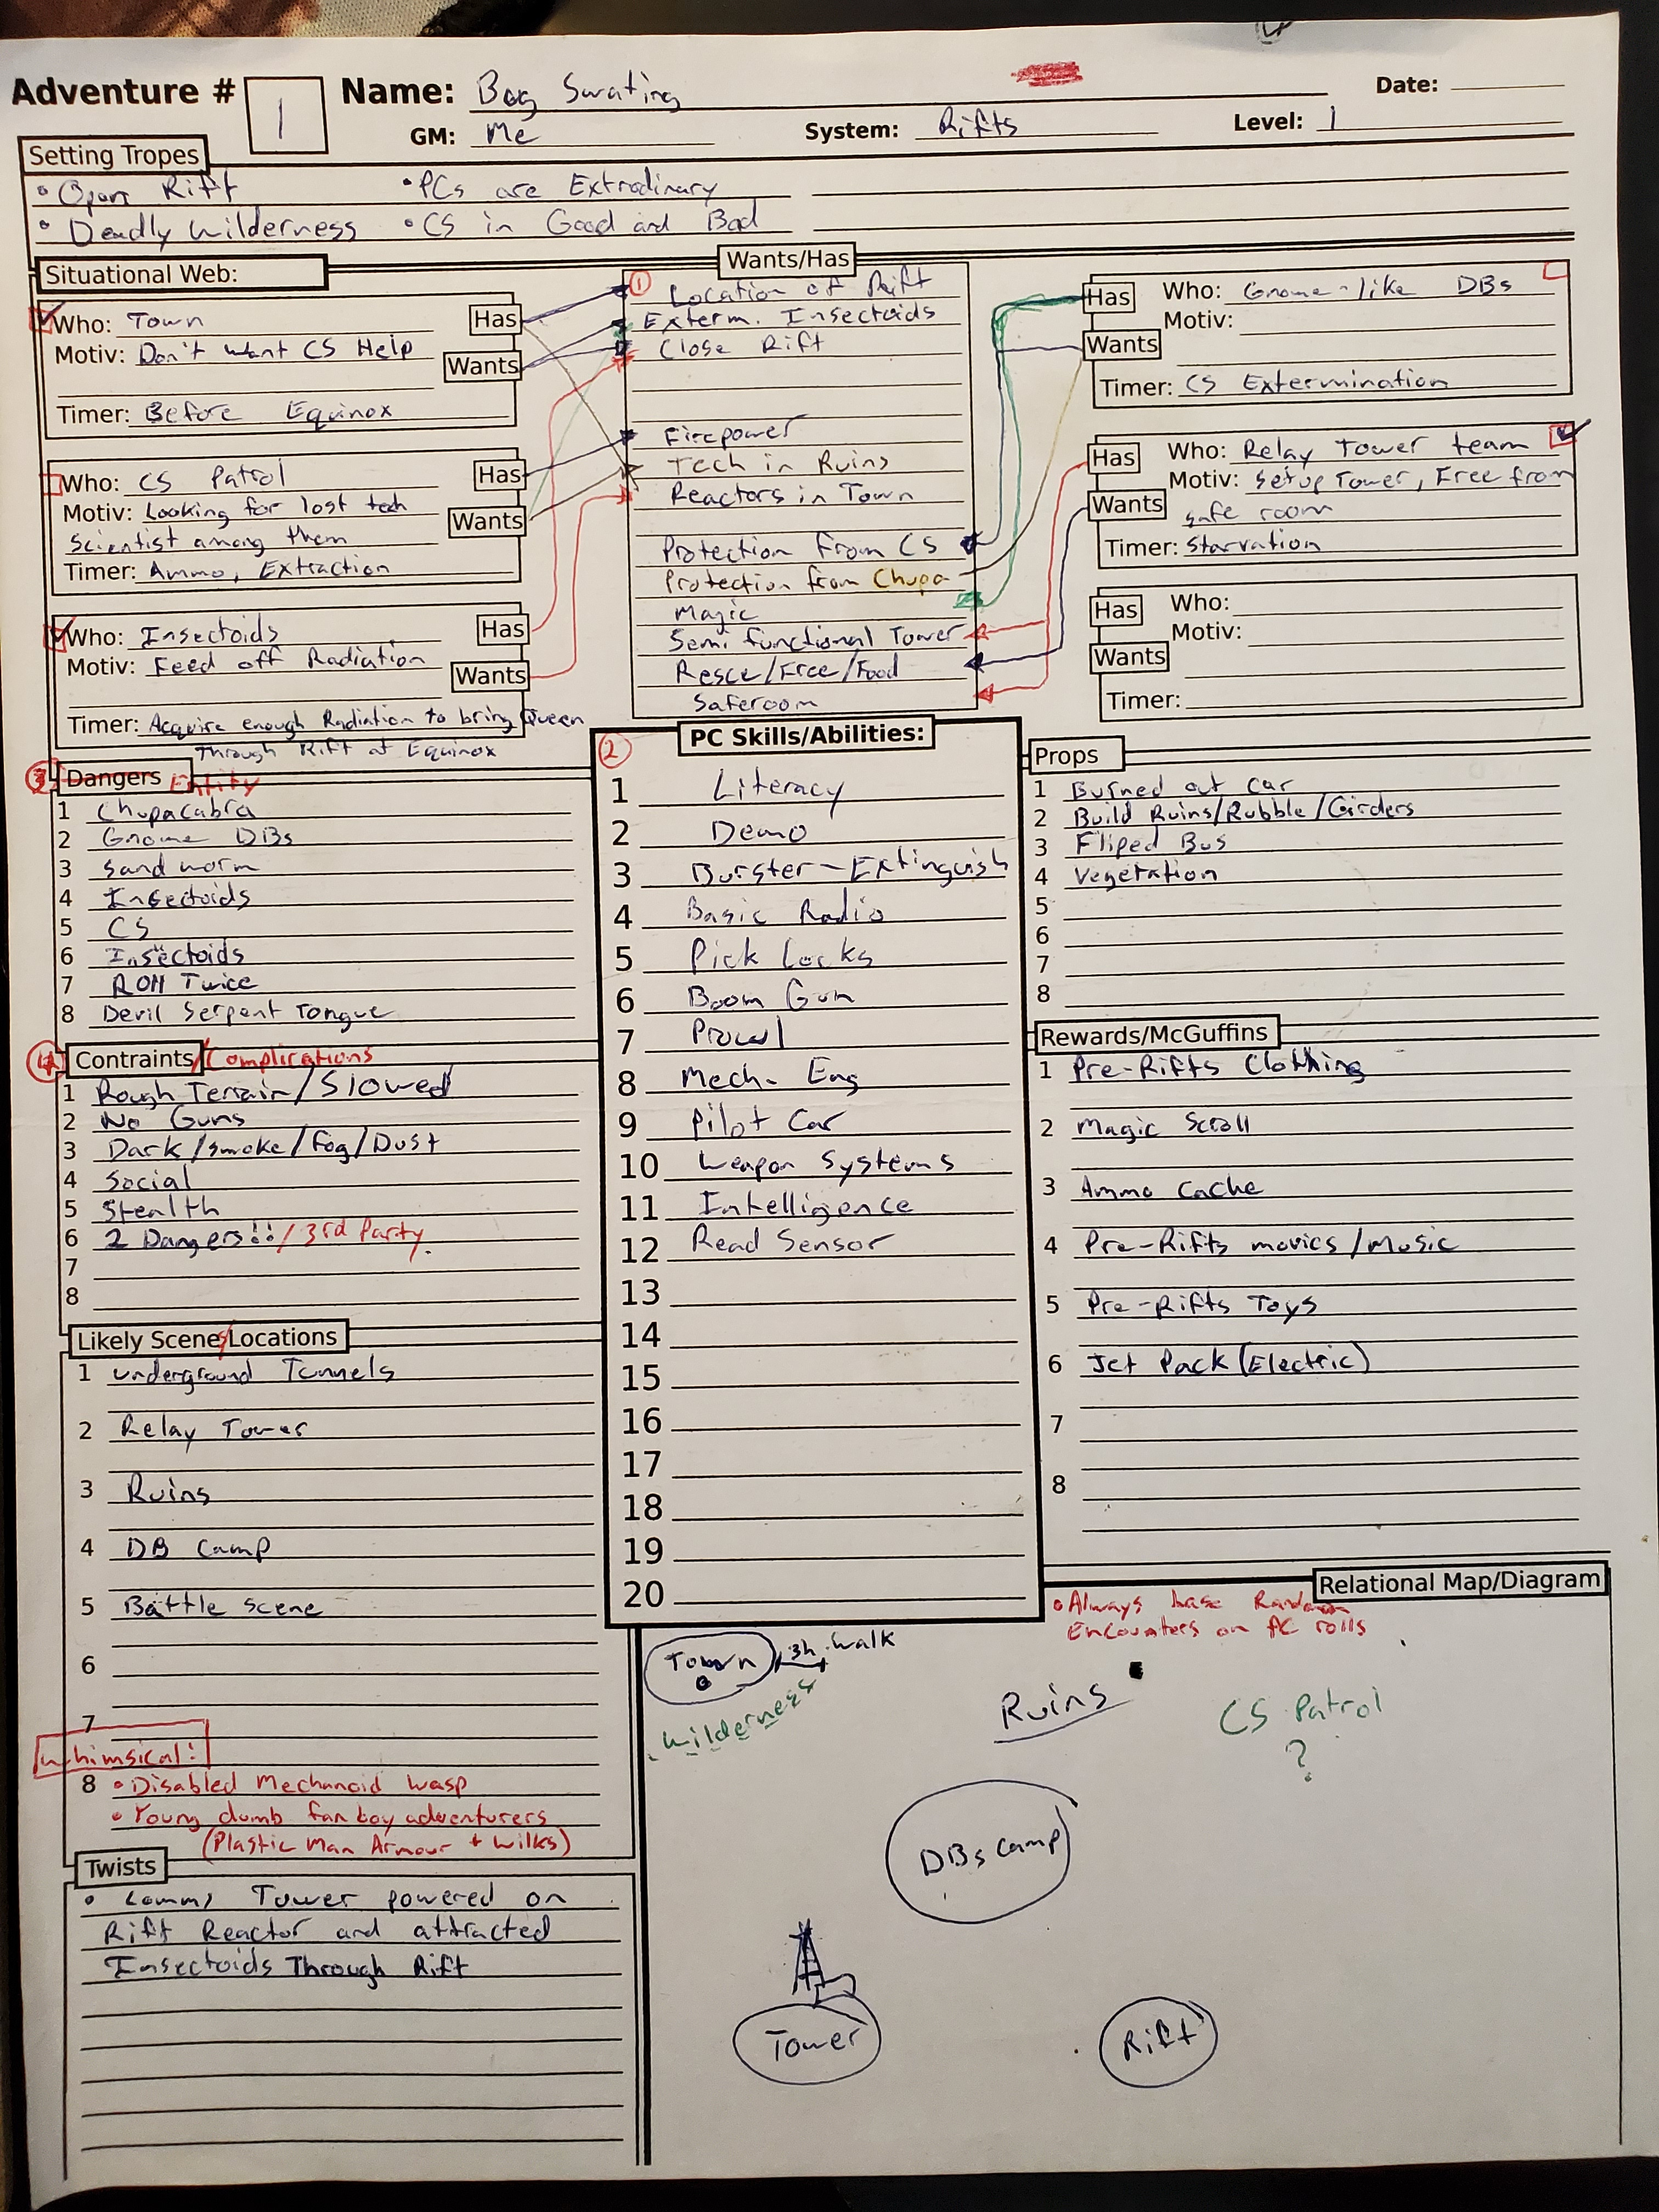 Adventure # 1 Name: Bog Swating Date:
GM: Me System: Rifts Level: 1
Setting Tropes
• Open Rift • PCs are Extrodinary
• Deadly Wilderness • CS in Good and Bad
Situational Web:
Who: Town
Motiv: Don't want CS Help
Timer: Before Equinox
Has
Wants
Who: CS Patrol
Motiv: Looking for lost tech
Scientist among them
Timer: Ammo, Extraction
Has
Wants
Who: Insectoids
Motiv: Feed off Radiation
Timer: Acquire enough Radiation to bring Queen
Through Rift at Equinox
Has
Wants
Wants/Has
1
Location of Rift
Exterm. Insectoids
Close Rift
Firepower
Tech in Ruins
Reactors in Town
Protection from CS
Protection from Chupa-
Magic
Semi functional Tower
Resce/Free/Food
Saferoom
Has
Wants
Who: Gnome-like DBs
Motiv:
Timer: CS Extermination
Has
Wants
Who: Relay Tower team
Motiv: Setup Tower, Free from
safe room
Timer: Starvation
Has
Wants
Who:
Motiv:
Timer:
3 Dangers Entity
1 Chupacabra
2 Gnome DBs
3 Sand worm
4 Insectoids
5 CS
6 Insectoids
7 Roll Twice
8 Devil Serpent Tongue
4 Contraints/Complications
1 Rough Terrain/Slowed
2 No Guns
3 Dark/Smoke/Fog/Dust
4 Social
5 Stealth
6 2 Dangers!!/3rd Party.
7
8
Likely Scenes/Locations
1 underground Tunnels
2 Relay Tower
3 Ruins
4 DB Camp
5 Battle Scene
6
7
Whimsical:
8 • Disabled Mechanoid Wasp
• Young dumb fan boy adventurers
(Plastic Man Armour + Wilks)
Twists
• Comms Tower powered on
Rift Reactor and attracted
Insectoids Through Rift
2
PC Skills/Abilities:
1 Literacy
2 Demo
3 Burster-Extinguish
4 Basic Radio
5 Pick Locks
6 Boom Gun
7 Prowl
8 Mech. Eng
9 Pilot Car
10 Weapon Systems
11 Intelligence
12 Read Sensor
13
14
15
16
17
18
19
20
Props
1 Burned out car
2 Build Ruins/Rubble/Girders
3 Fliped Bus
4 Vegetation
5
6
7
8
Rewards/McGuffins
1 Pre-Rifts Clothing
2 Magic Scroll
3 Ammo Cache
4 Pre-Rifts movies/Music
5 Pre-Rifts Toys
6 Jet Pack (Electric)
7
8
Relational Map/Diagram
• Always base Random
Encounters on PC rolls
Town 3h walk
Wilderness
Ruins
CS Patrol
?
DBs Camp
Tower
Rift